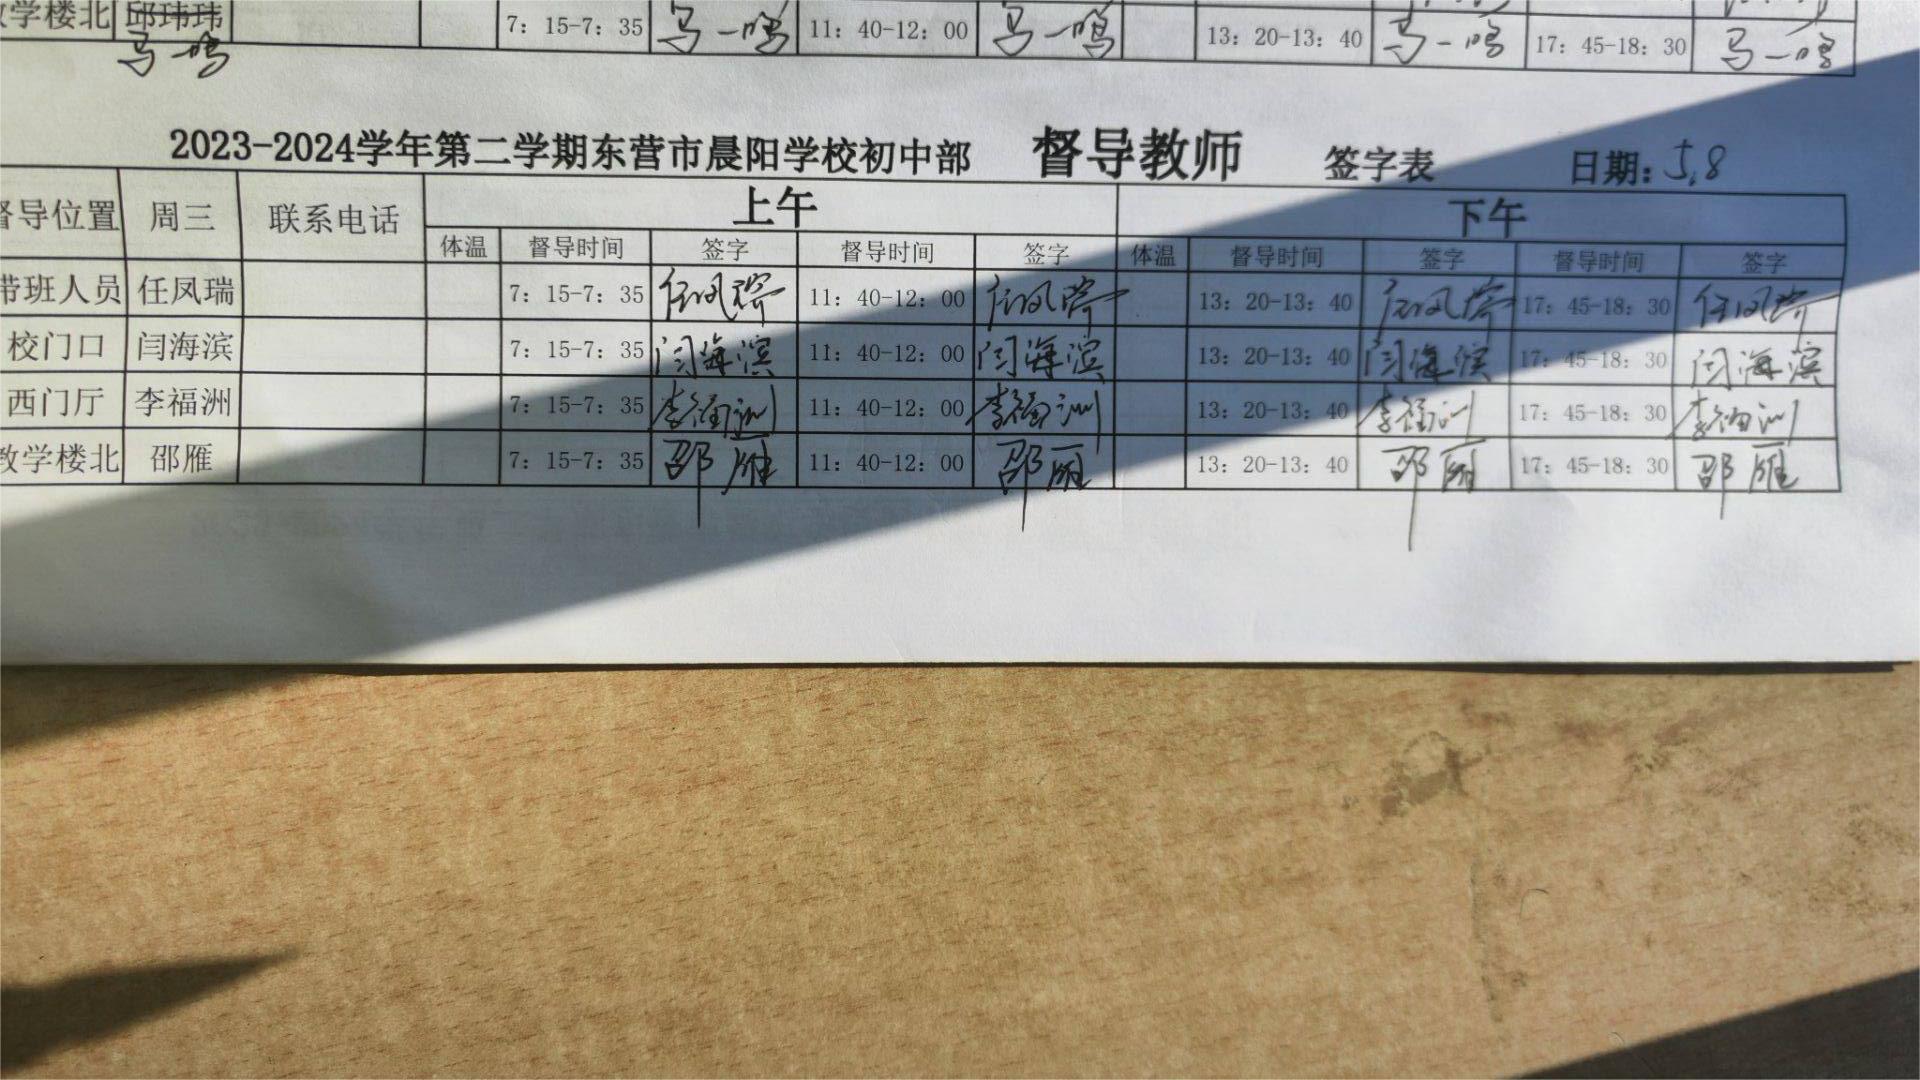 学楼北 邱玮玮 7：15-7：35 马一鸣 11：40-12：00 马一鸣 13：20-13：40 马一鸣 17：45-18：30 马一鸣
马一鸣
2023-2024学年第二学期东营市晨阳学校初中部 督导教师 签字表 日期：5.8
督导位置 周三 联系电话 上午 下午
体温 督导时间 签字 督导时间 签字 体温 督导时间 签字 督导时间 签字
带班人员 任凤瑞 7：15-7：35 任凤瑞 11：40-12：00 任凤瑞 13：20-13：40 任凤瑞 17：45-18：30 任凤瑞
校门口 闫海滨 7：15-7：35 闫海滨 11：40-12：00 闫海滨 13：20-13：40 闫海滨 17：45-18：30 闫海滨
西门厅 李福洲 7：15-7：35 李福洲 11：40-12：00 李福洲 13：20-13：40 李福洲 17：45-18：30 李福洲
教学楼北 邵雁 7：15-7：35 邵雁 11：40-12：00 邵雁 13：20-13：40 邵雁 17：45-18：30 邵雁